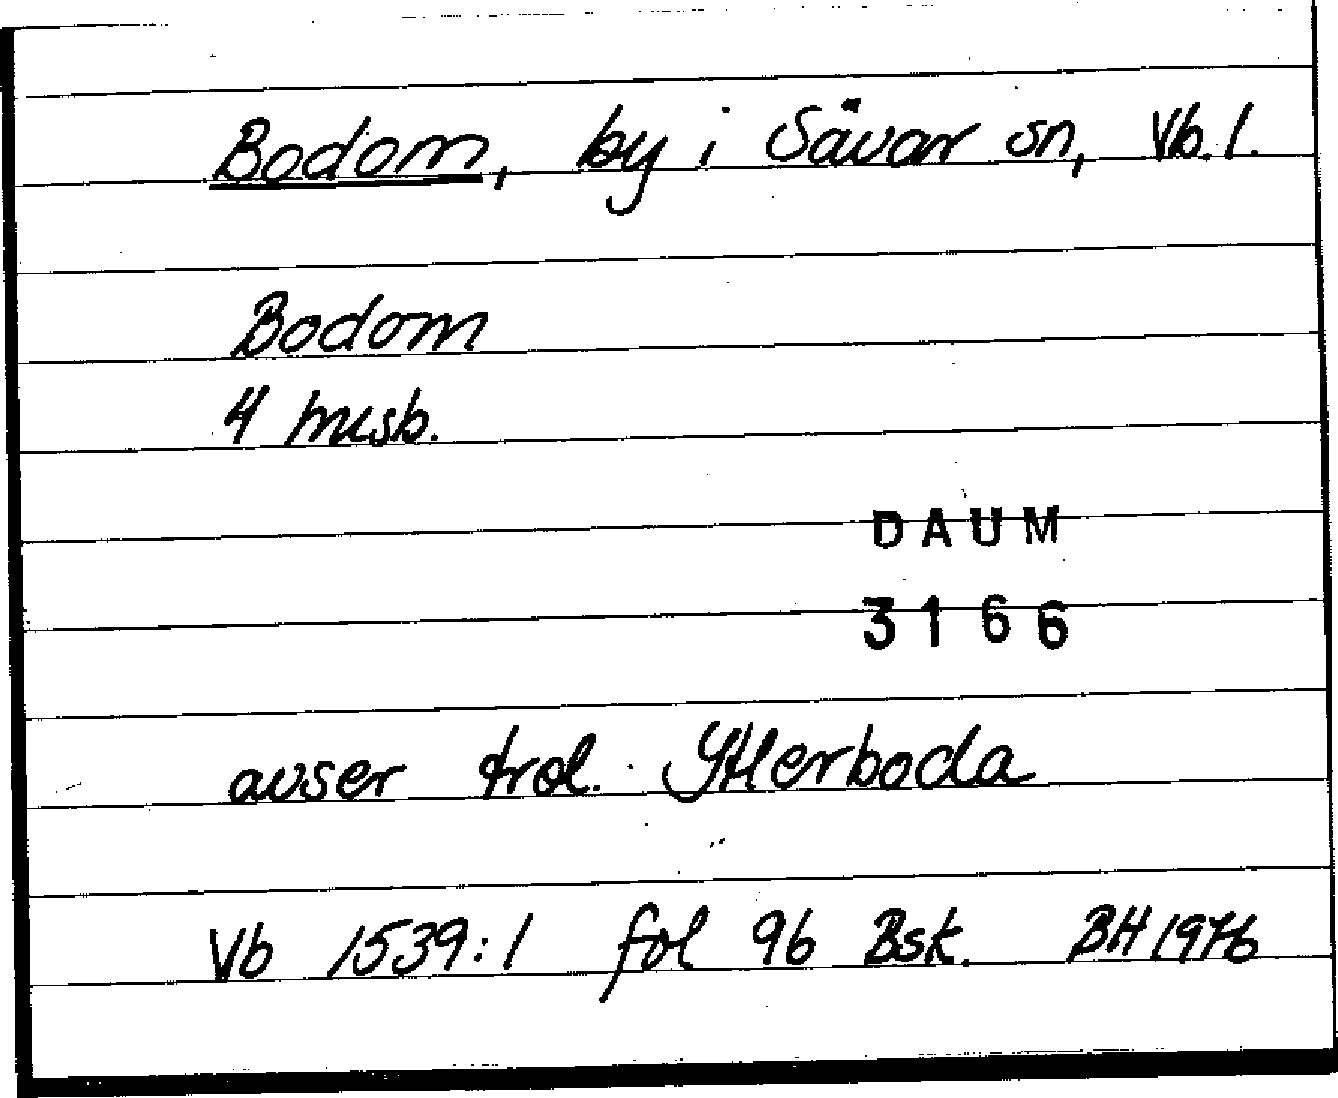 Bodom, by i Sävar sn, Vb. l.
Bodom
4 mcsb.
DAUM
3166
avser trol. Ytterboda
Vb 1539:1 fol 96 Bsk. BH 1976